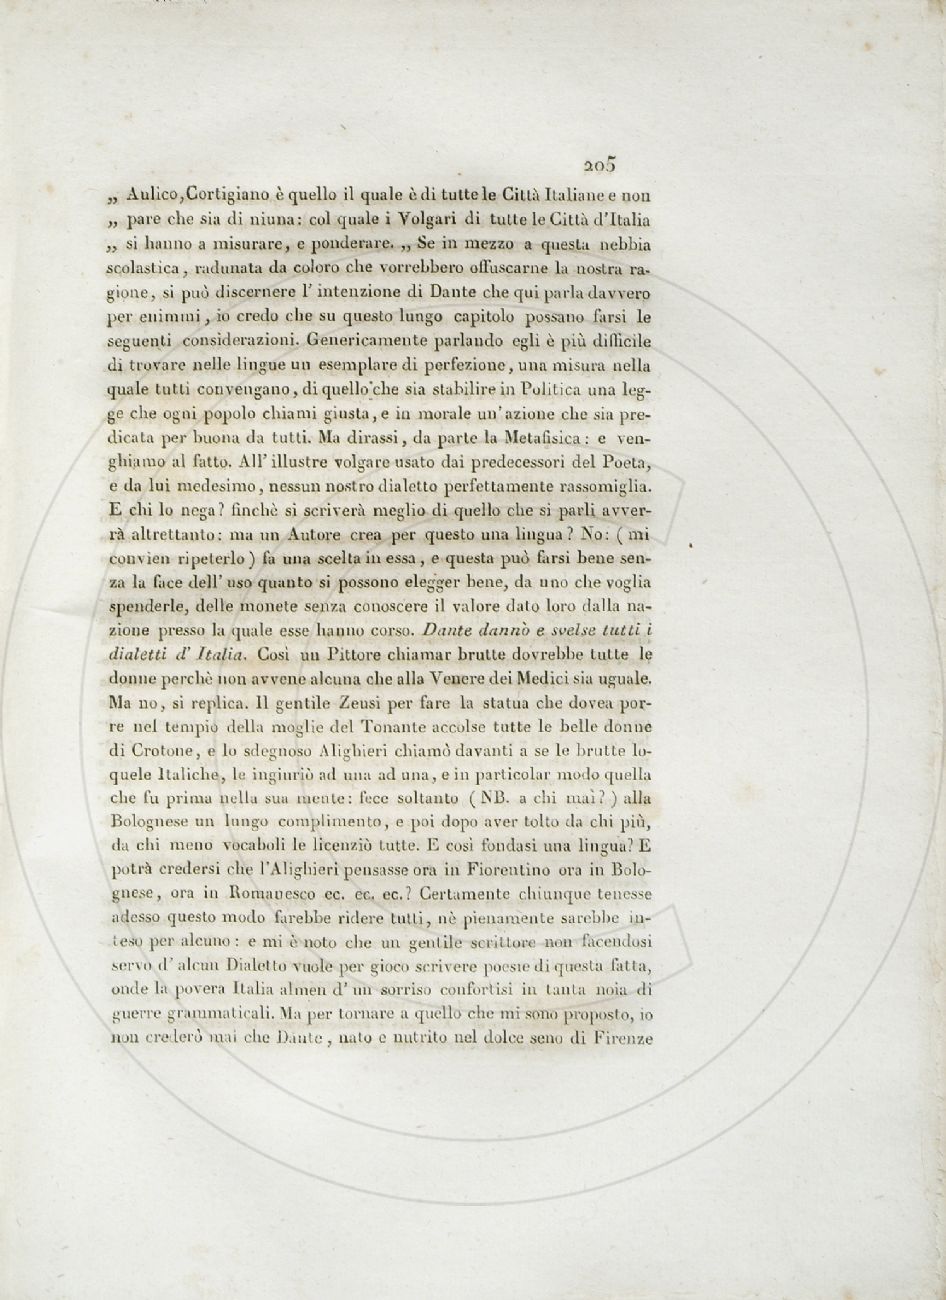 205
„ Aulico, Cortigiano è quello il quale è di tutte le Città Italiane e non
„ pare che sia di niuna: col quale i Volgari di tutte le Città d'Italia
„ si hanno a misurare, e ponderare. „ Se in mezzo a questa nebbia
scolastica, radunata da coloro che vorrebbero offuscarne la nostra ra-
gione, si può discernere l' intenzione di Dante che qui parla davvero
per enimmi, io credo che su questo lungo capitolo possano farsi le
seguenti considerazioni. Genericamente parlando egli è più difficile
di trovare nelle lingue un esemplare di perfezione, una misura nella
quale tutti convengano, di quello che sia stabilire in Politica una leg-
ge che ogni popolo chiami giusta, e in morale un' azione che sia pre-
dicata per buona da tutti. Ma dirassi, da parte la Metafisica: e ven-
ghiamo al fatto. All' illustre volgare usato dai predecessori del Poeta,
e da lui medesimo, nessun nostro dialetto perfettamente rassomiglia.
E chi lo nega? finchè si scriverà meglio di quello che si parli avver-
rà altrettanto: ma un Autore crea per questo una lingua? No: ( mi
convien ripeterlo ) fa una scelta in essa, e questa può farsi bene sen-
za la face dell' uso quanto si possono elegger bene, da uno che voglia
spenderle, delle monete senza conoscere il valore dato loro dalla na-
zione presso la quale esse hanno corso. Dante dannò e svelse tutti i
dialetti d' Italia. Così un Pittore chiamar brutte dovrebbe tutte le
donne perchè non avvene alcuna che alla Venere dei Medici sia uguale.
Ma no, si replica. Il gentile Zeusi per fare la statua che dovea por-
re nel tempio della moglie del Tonante accolse tutte le belle donne
di Crotone, e lo sdegnoso Alighieri chiamò davanti a se le brutte lo-
quele Italiche, le ingiuriò ad una ad una, e in particolar modo quella
che fu prima nella sua mente: fece soltanto ( NB. a chi mai? ) alla
Bolognese un lungo complimento, e poi dopo aver tolto da chi più,
da chi meno vocaboli le licenziò tutte. E così fondasi una lingua? E
potrà credersi che l'Alighieri pensasse ora in Fiorentino ora in Bolo-
gnese, ora in Romanesco ec. ec. ec.? Certamente chiunque tenesse
adesso questo modo farebbe ridere tutti, nè pienamente sarebbe in-
teso per alcuno: e mi è noto che un gentile scrittore non facendosi
servo d' alcun Dialetto vuole per gioco scrivere poesie di questa fatta,
onde la povera Italia almen d' un sorriso confortisi in tanta noia di
guerre grammaticali. Ma per tornare a quello che mi sono proposto, io
non crederò mai che Dante, nato e nutrito nel dolce seno di Firenze